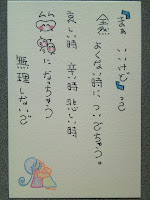 まぁ いい
全然 よくない時に ついでちゃう。
しい時 辛い時 悲しい時
笑顔に なっちゃう
無理しないで